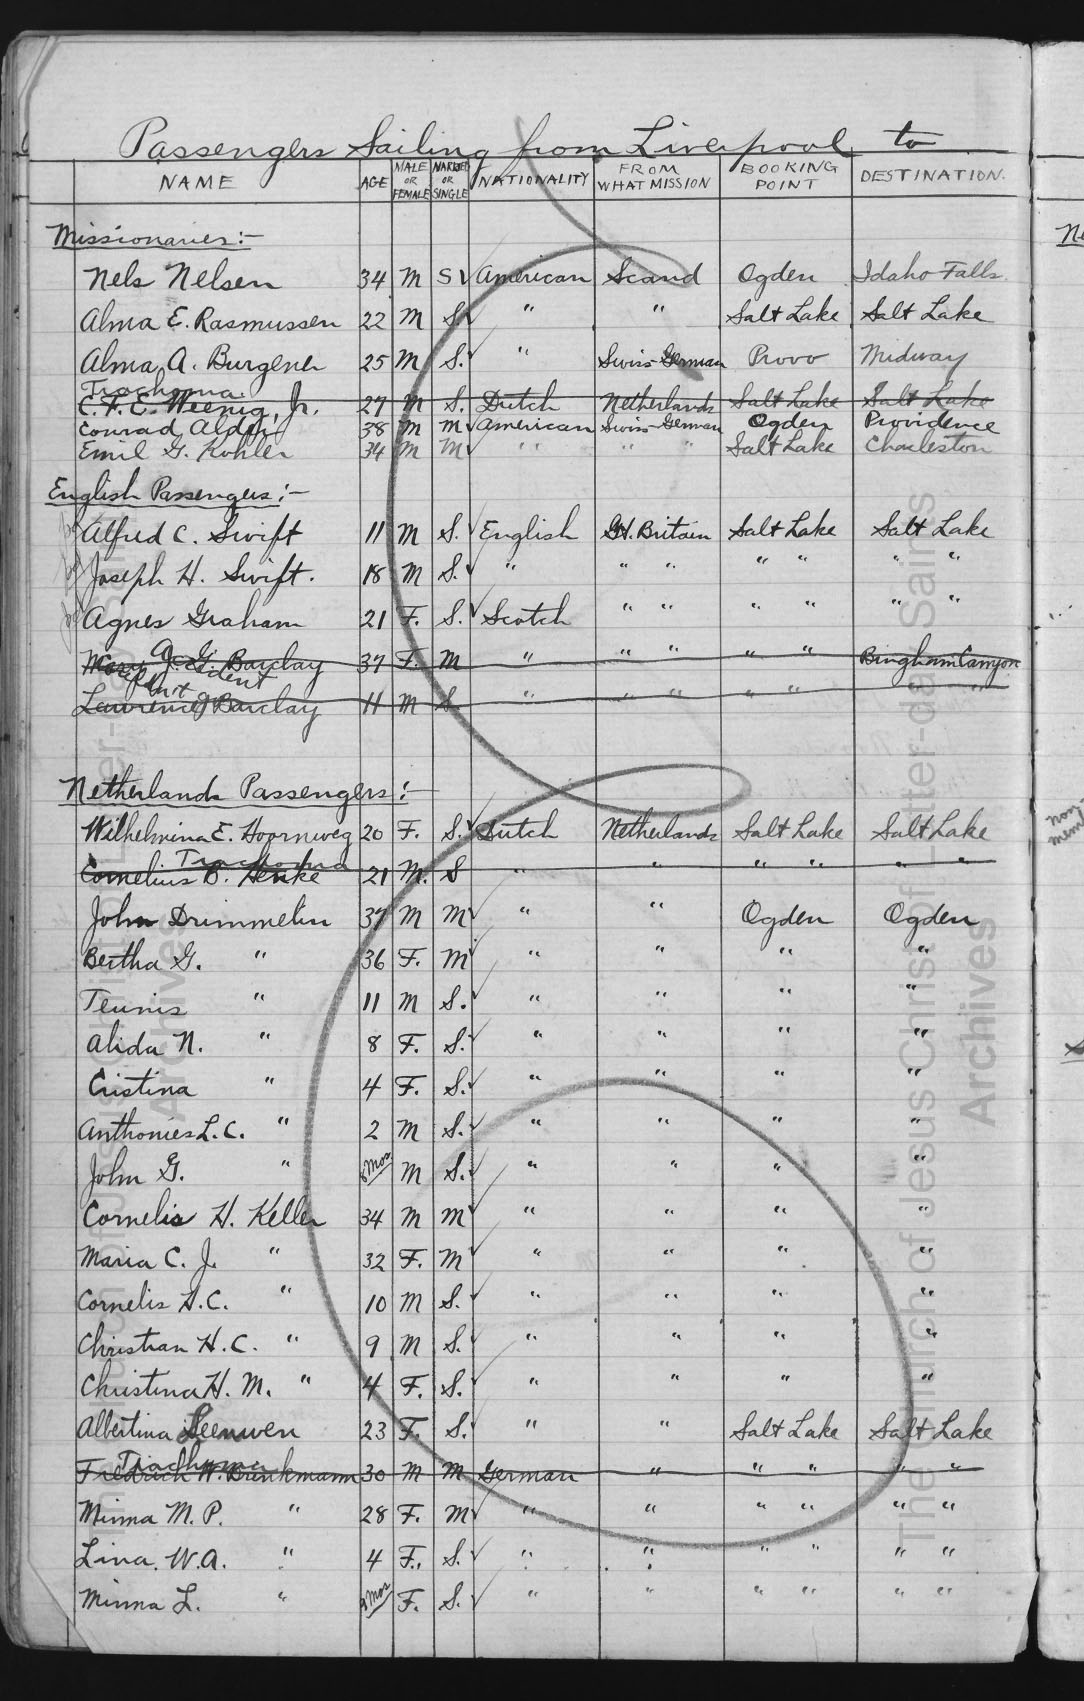 Passengers Sailing from Liverpool to
NAME AGE MALE OR FEMALE MARRIED OR SINGLE NATIONALITY FROM WHAT MISSION BOOKING POINT DESTINATION.
Missionaries:-
Nels Nelsen 34 M S √ American Scand Ogden Idaho Falls.
Alma E. Rasmussen 22 M S. √ " " Salt Lake Salt Lake
Alma A. Burgener 25 M S. √ " Swiss-German Provo Midway
Trachoma
C. F. E. Weenig, Jr. 27 M S. Dutch Netherlands Salt Lake Salt Lake
Conrad Alder 38 M M √ American Swiss-German Ogden Providence
Emil G. Kohler 34 M M √ " " " " Salt Lake Charleston
English Passengers:-
Alfred C. Swift 11 M S. √ English Gt. Britain Salt Lake Salt Lake
Joseph H. Swift. 18 M S. √ " " " " " " "
Agnes Graham 21 F. S. √ Scotch " " " " " "
Mary J. G. Barclay 37 F. M " " " " " Bingham Canyon
Lawrence Barclay 11 M S " " " " " " "
Netherlands Passengers:-
Wilhelmina E. Hoornweg 20 F. S. √ Dutch Netherlands Salt Lake Salt Lake
Trachoma
Cornelius B. Henke 21 M. S " " " " " "
John Drimmelin 37 M M √ " " Ogden Ogden
Bertha G. " 36 F. M √ " " " "
Teunis " 11 M S. √ " " " "
Alida N. " 8 F. S. √ " " " "
Cristina " 4 F. S. √ " " " "
Anthonies L. C. " 2 M S. √ " " " "
John G. " mos M S. √ " " " "
Cornelis H. Keller 34 M M √ " " " "
Maria C. J. " 32 F. M √ " " " "
Cornelis H. C. " 10 M S. √ " " " "
Christian H. C. " 9 M S. √ " " " "
Christina H. M. " 4 F. S. √ " " " "
Albertina Leenwen 23 F. S. √ " " Salt Lake Salt Lake
Trachoma
Fredrich W. Brinkmann 30 M M German " " " " "
Minna M. P. " 28 F. M √ " " " " " "
Lina. W. A. " 4 F. S. √ " " " " " "
Minna L. " mos F. S. √ " " " " " "
The Church of Jesus Christ of Latter-day Saints
Archives
The Church of Jesus Christ of Latter-day Saints
Archives
non
mem